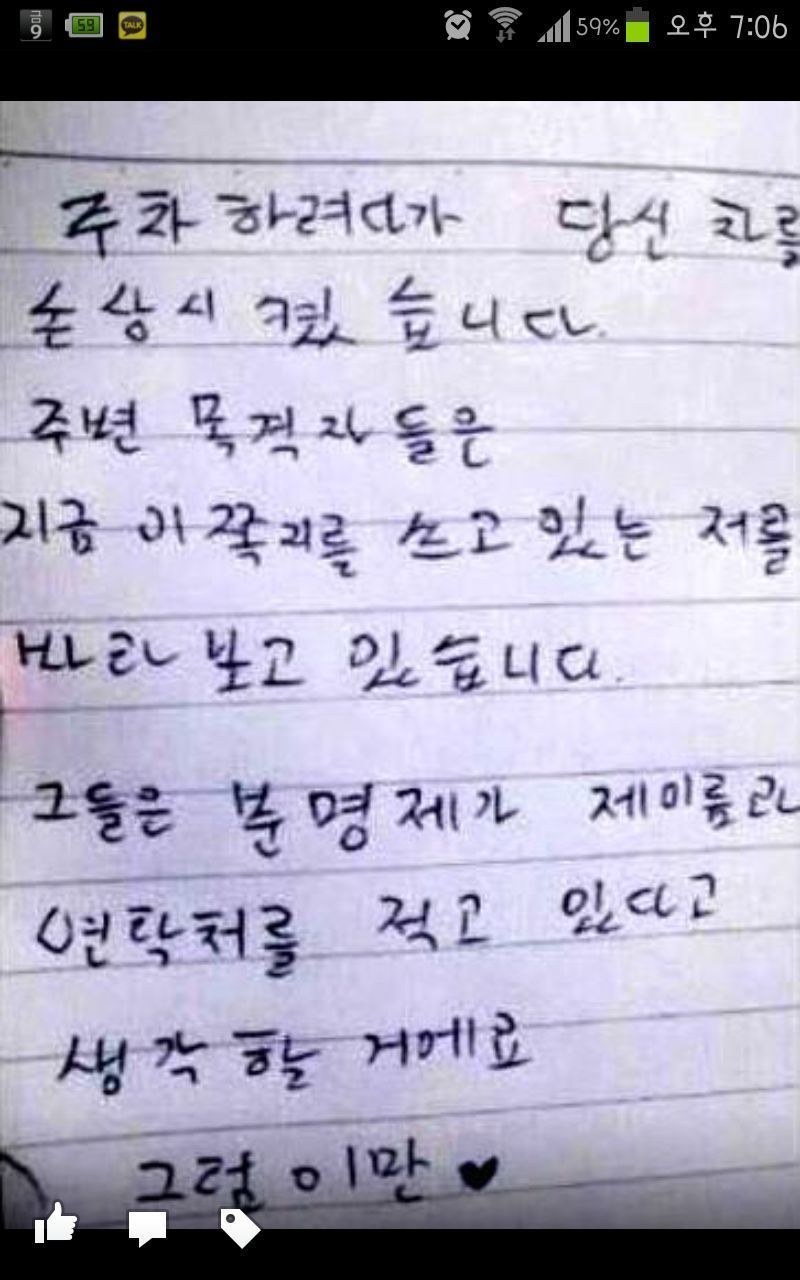 금
9
59
TALK
59%
오후 7:06
주차 하려다가 당신 차를
손상시켰습니다.
주변 목격자들은
지금 이 쪽지를 쓰고 있는 저를
바라보고 있습니다.
그들은 분명 제가 제이름과
연락처를 적고 있다고
생각할 거에요
그럼 이만 ♥